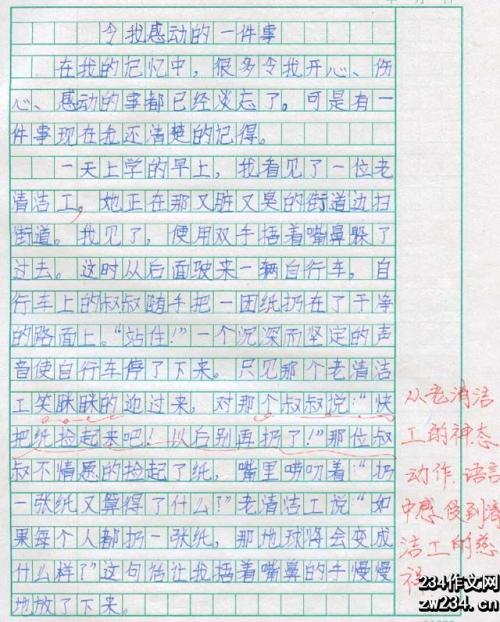 令我感动的一件事
在我的记忆中，很多令我开心、伤
心、感动的事都已经淡忘了。可是有一
件事现在我还清楚的记得。
一天上学的早上，我看见了一位老
清洁工，她正在那又脏又臭的街道边扫
街道。我见了，便用双手捂着嘴鼻躲了
过去。这时从后面驶来一辆自行车，自
行车上的叔叔随手把一团纸扔在了干净
的路面上。“站住！”一个沉深而坚定的声
音使自行车停了下来。只见那个老清洁
工笑眯眯的迎过来，对那个叔叔说：“快
把纸捡起来吧！以后别再扔了！”那位叔
叔不情愿的捡起了纸，嘴里唠叨着：“扔
一张纸又算得了什么？”老清洁工说“如
果每个人都扔一张纸，那地球将会变成
什么样？”这句话让我捂着嘴鼻的手慢慢
地放了下来。
从老清洁
工的神态
动作、语言
中感受到清
洁工的慈
祥
234作文网
zw234.cn